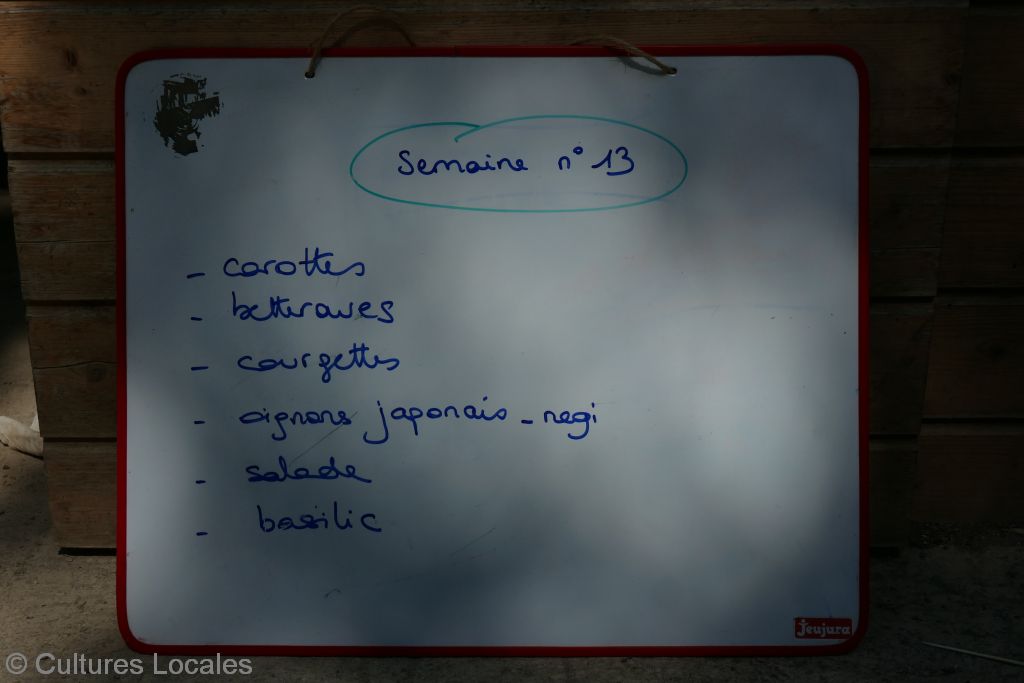 Semaine n° 13
- carottes
- betteraves
- courgettes
- oignons japonais - negi
- salade
- basilic
jeujura
© Cultures Locales